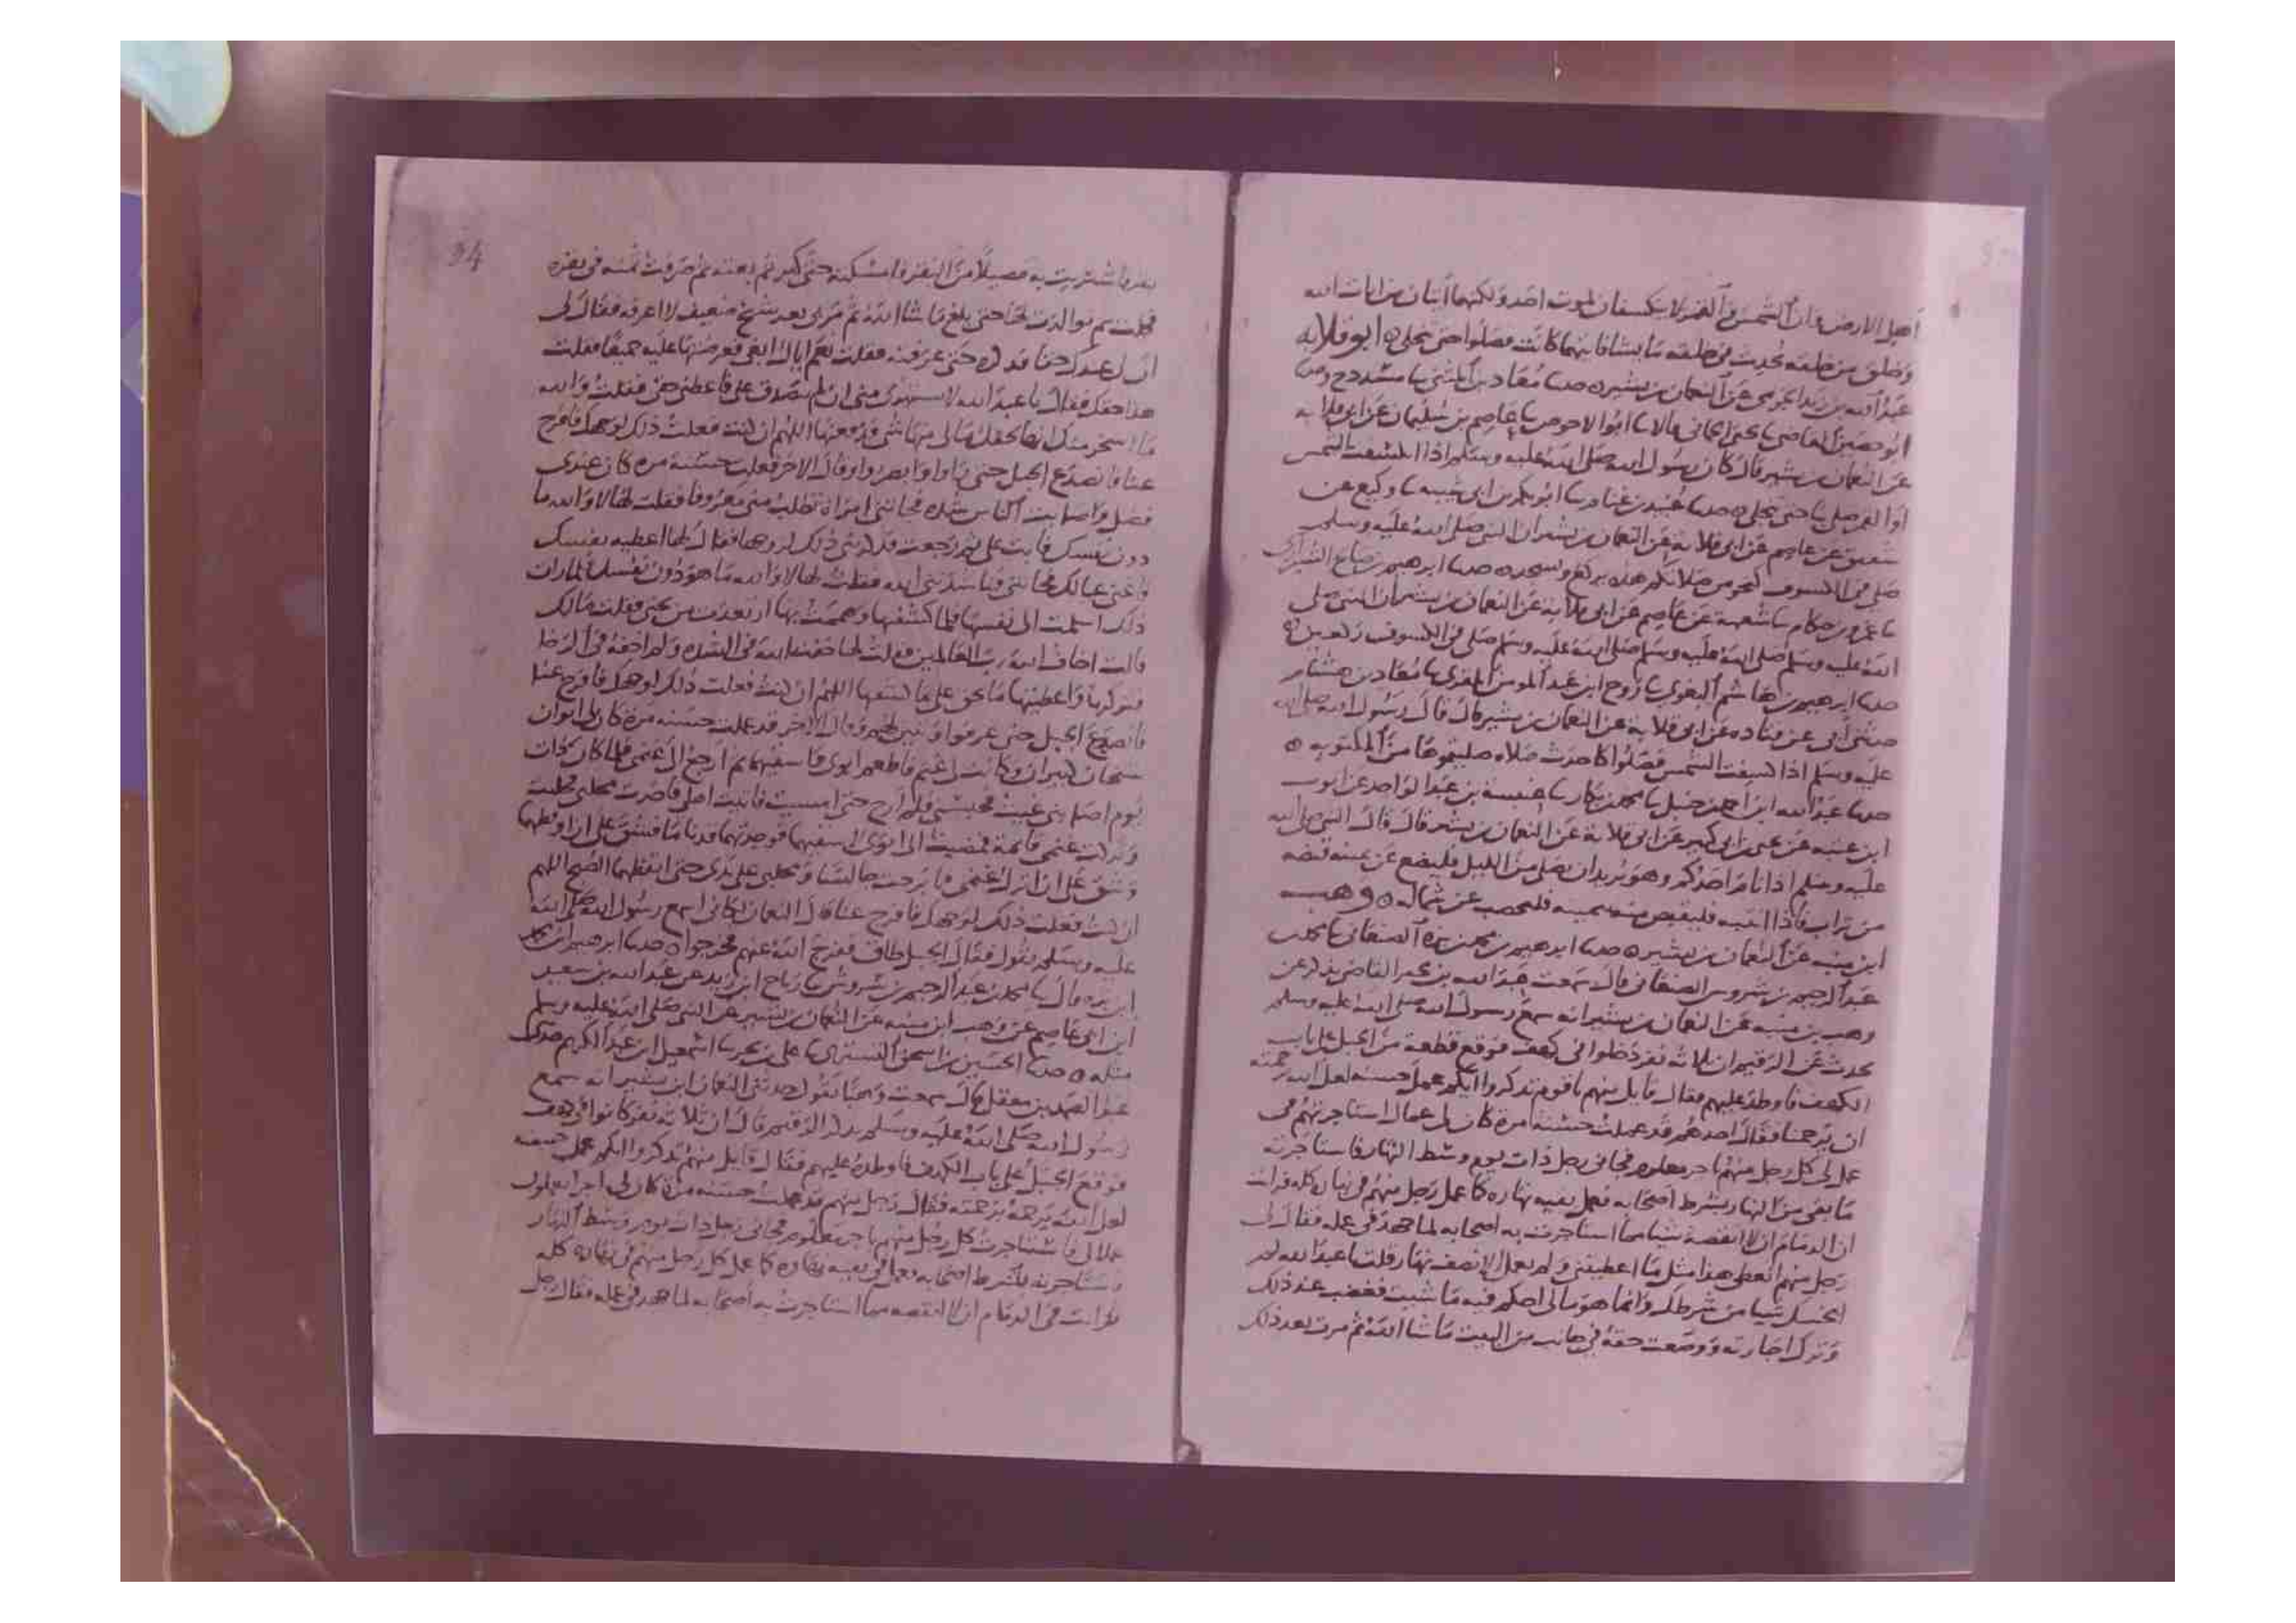 أهل الارض وان الشمس والقمر لا ينكسفان لموت احد ولكنهما آيتان من ايات الله
وخلق من خلقه يحدث في خلقه ما يشا فايهما كانت فصلوا حتى تنجلي ه ابو قلابه
عبد الله بن زيد الجرمي عن النعمان بن بشير ه حدثنا معاذ بن المثنى نا مسدد ح وحدثنا
ابو حصين القاضي نا يحيى الحماني قالا نا ابو الاحوص نا عاصم بن سليمان عن ابي قلابه
عن النعمان بن بشير قال كان رسول الله صلى الله عليه وسلم اذا انكسفت الشمس
او القمر صلى بنا حتى تنجلي ه حدثنا عبيد بن غنام نا ابو بكر بن ابي شيبه نا وكيع عن
عن عاصم عن ابي قلابه عن النعمان بن بشير ان النبي صلى الله عليه وسلم
صلى في الكسوف نحو من صلاتكم هذه يركع ويسجد ه حدثنا ابرهيم بن صالح الشيرازي
نا عمرو بن حكام نا شعبة عن عاصم عن ابي قلابة عن النعمان بن بشير ان النبي صلى
الله عليه وسلم صلى الله عليه وسلم صلى في الكسوف ركعتين ه
حدثنا ابرهيم بن هاشم البغوي نا روح ابن عبد المومن المقري نا معاذ بن هشام
حدثني ابي عن قتاده عن ابي قلابة عن النعمان بن بشير قال قال رسول الله صلى الله
عليه وسلم اذا كسفت الشمس فصلوا كاحدث صلاه صليتموها من المكتوبه ه
حدثنا عبد الله ابن احمد بن حنبل نا محمد بن بكار نا عنبسة بن عبد الواحد عن ايوب
ابن عتبه عن يحيى بن ابي كثير عن ابي قلابة عن النعمان بن بشير قال قال النبي صلى الله
عليه وسلم اذا نام احدكم وهو يريد ان يصلي من الليل فليضع عن يمينه قبضه
من تراب فاذا انتبه فليقبض منه بيمينه فليحصب عن شماله ه وهب
ابن منبه عن النعمان بن بشير ه حدثنا ابرهيم بن محمد بن بره الصنعاني نا محمد بن
عبد الرحيم بن شروس الصنعاني قال سمعت عبد الله بن بحير القاص يذكر عن
وهب بن منبه عن النعمان بن بشير انه سمع رسول الله صلى الله عليه وسلم
يحدث عن الرقيم ان ثلاثه نفر دخلوا في كهف فوقع قطعة من الجبل على باب
الكهف فاوطد عليهم فقال قايل منهم يا قوم تذكروا ايكم عمل حسنه لعل الله برحمته
ان يرحمنا فقال احدهم قد عملت حسنة مرة كان لي عمال استاجرتهم في
عمل لي كل رجل منهم باجر معلوم فجاني رجل ذات يوم وسط النهار فاستاجرته
ما بقي من النهار بشرط اصحابه فعمل بقيه نهاره كما عمل رجل منهم في نهاره كله فرايت
ان الذمام ان لا انقصه شيا مما استاجرت به اصحابه لما جهد في عمله فقال لي
رجل منهم اتعطي هذا مثل ما اعطيتني ولم يعمل الا نصف نهار قلت يا عبد الله لم
ابخسك شيا من شرطك وانما هو مالي احكم فيه ما شيت فغضب عند ذلك
وترك اجارته ووضعت حقه في جانب من البيت ما شا الله ثم مرت بعد ذلك
94
بقر فاشتريت به فصيلا من البقر فامسكته حتى كبر ثم بعته ثم صرفت ثمنه في بقره
فحملت ثم توالدت لها حتى بلغ ما شا الله ثم مر بي بعد شيخ ضعيف لا اعرفه فقال لي
ان لي عندك حقا فذكره حتى عرفته فقلت نعم اياك ابغي فعرضتها عليه جميعا فقلت
هذا حقك فقال يا عبد الله لا تستهزئ مني ان لم تصدق علي فاعطني حقي فقلت والله
ما اسخر منك انها لحقك مالي منها شي فدفعتها اللهم ان كنت فعلت ذلك لوجهك فافرج
عنا فانصدع الجبل حتى راوا وابصروا وقال الاخر فعلت حسنة مرة كان عندي
فضل واصابت الناس شده فجاتني امراة تطلب مني معروفا فقلت لها لا والله ما
دون نفسك فابت علي ثم رجعت فذكرت ذلك لزوجها فقال لها اعطيه نفسك
واغني عيالك فجاتني فناشدتني الله فقلت لها لا والله ما هو دون نفسك فلما رات
ذلك اسلمت الي نفسها فلما كشفتها وهممت بها ارتعدت من تحتي فقلت مالك
قالت اخاف الله رب العالمين فقلت لها خفتيه في الشده ولم اخفه في الرخا
فتركتها واعطيتها ما يحق علي فيما كشفتها اللهم ان كنت فعلت ذلك لوجهك فافرج عنا
فانصدع الجبل حتى عرفوا وتبين لهم وقال الاخر قد عملت حسنه مرة كان لي ابوان
شيخان كبيران وكانت لي غنم فاطعم ابوي واسقيهما ثم ارجع الى غنمي فلما كان ذات
يوم اصابني غيث فحبسني فلم ارح حتى امسيت فاتيت اهلي فاخذت محلبي فحلبت
وتركت غنمي قائمة فمضيت الى ابوي لاسقيهما فوجدتهما قد ناما فشق علي ان اوقظهما
وشق علي ان اترك غنمي فما برحت جالسا ومحلبي على يدي حتى ايقظهما الصبح اللهم
ان كنت فعلت ذلك لوجهك فافرج عنا قال النعمان لكاني اسمع رسول الله صلى الله
عليه وسلم يقول فقال الجبل طاق ففرج الله عنهم فخرجوا ه حدثنا ابرهيم ابن محمد
ابن بره قال نا محمد بن عبد الرحيم بن شروس نا رباح ابن زيد عن عبد الله بن سعيد
ابن ابي عاصم عن وهب ابن منبه عن النعمان بن بشير عن النبي صلى الله عليه وسلم
مثله ه حدثنا الحسين بن اسحق التستري نا علي بن بحر نا اسمعيل ابن عبد الكريم حدثني
عبد الصمد بن معقل قال سمعت وهبا يقول حدثني النعمان ابن بشير انه سمع
رسول الله صلى الله عليه وسلم يذكر الرقيم قال ان ثلاثه نفر كانوا في كهف
فوقع الجبل على باب الكهف فاوطد عليهم فقال قايل منهم تذكروا ايكم عمل حسنه
لعل الله يرحمنا برحمته فقال رجل منهم قد عملت حسنه مرة كان لي اجرا يعملون
عملا لي فاستاجرت كل رجل منهم باجر معلوم فجاني رجل ذات يوم وسط النهار
فاستاجرته بشرط اصحابه فعمل في بقيه نهاره كما عمل كل رجل منهم في نهاره كله
فرايت في الذمام ان لا انقصه مما استاجرت به اصحابه لما جهد في عمله فقال رجل